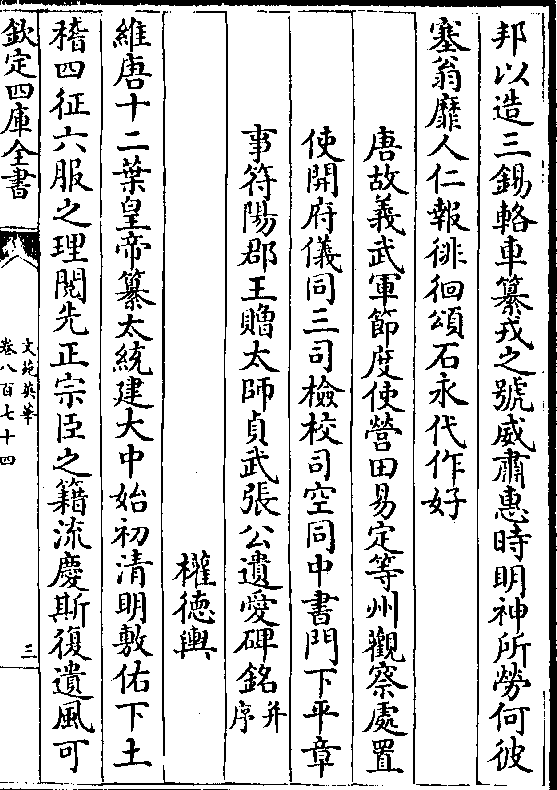 邦以造三錫輅車纂戎之號威肅惠時明神所勞何彼
塞翁靡人仁報徘徊頌石永代作好
唐故義武軍節度使營田易定等州觀察處置
使開府儀同三司檢校司空同中書門下平章
事符陽郡王贈太師貞武張公遺愛碑銘并序
權德輿
維唐十二葉皇帝纂太統建大中始初清明敷佑下土
稽四征六服之理閱先正宗臣之籍流慶斯復遺風可
欽定四庫全書
文苑英華
卷八百七十四
三